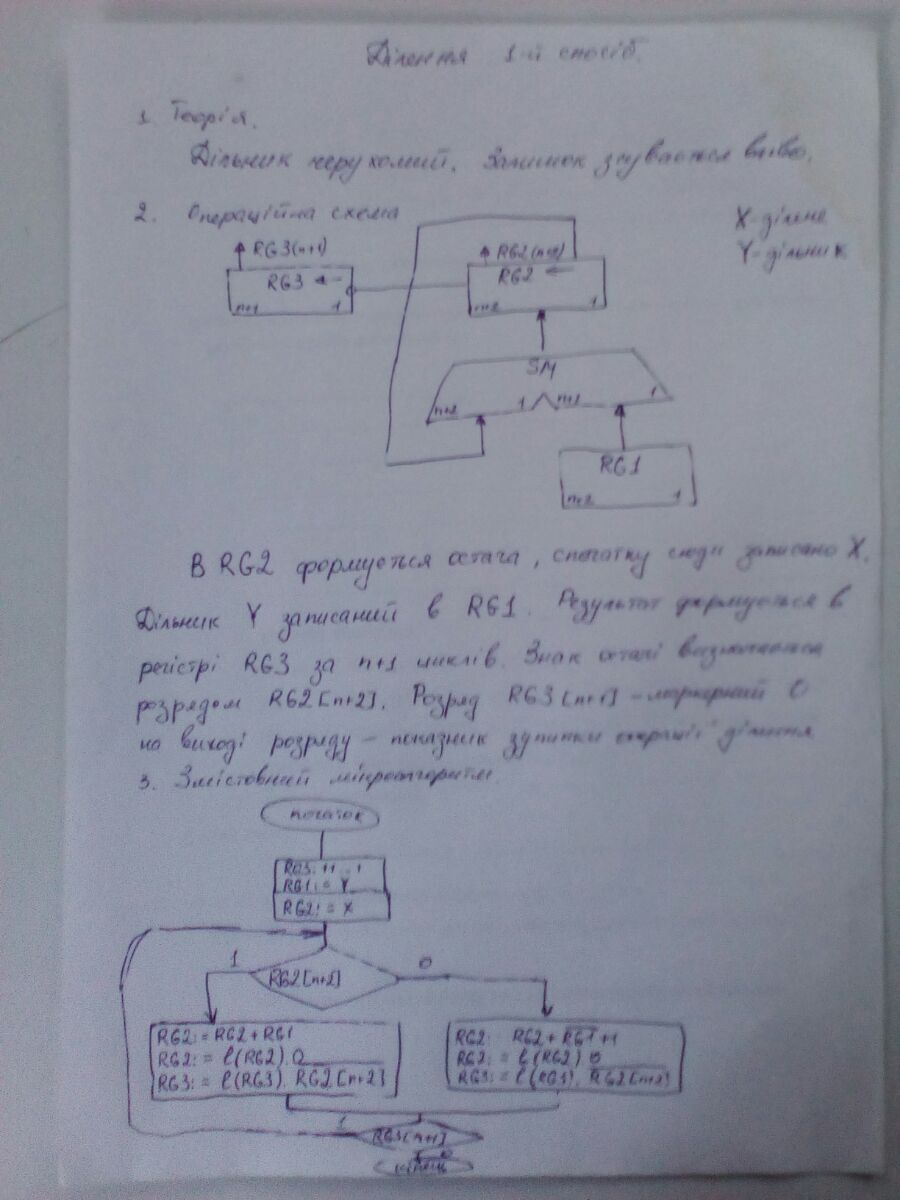 Ділення 1-й спосіб.
1. Теорія.
Дільник нерухомий. Залишок зсувається вліво.
2. Операційна схема
X-дільне
Y-дільник
RG3(n+1)
RG2(n+2)
RG3 ←
n+1 1
RG2 ←
n+2 1
SM
n+2 1 n+2 1
RG1
n+2 1
В RG2 формується остача, спочатку сюди записано X.
Дільник Y записаний в RG1. Результат формується в
регістрі RG3 за n+1 циклів. Знак остачі визначається
розрядом RG2[n+2]. Розряд RG3[n+1] - маркерний 0
на виході розряду - показник зупинки операції ділення
3. Змістовний мікроалгоритм.
початок
RG3: 11..1
RG1: = Y
RG2: = X
1 RG2[n+2] 0
RG2: = RG2 + RG1
RG2: = l(RG2).0
RG3: = l(RG3). RG2[n+2]
RG2: RG2 + RG1 + 1
RG2: = l(RG2) 0
RG3: = l(RG3). RG2[n+2]
1 RG3[n+1]
0
кінець